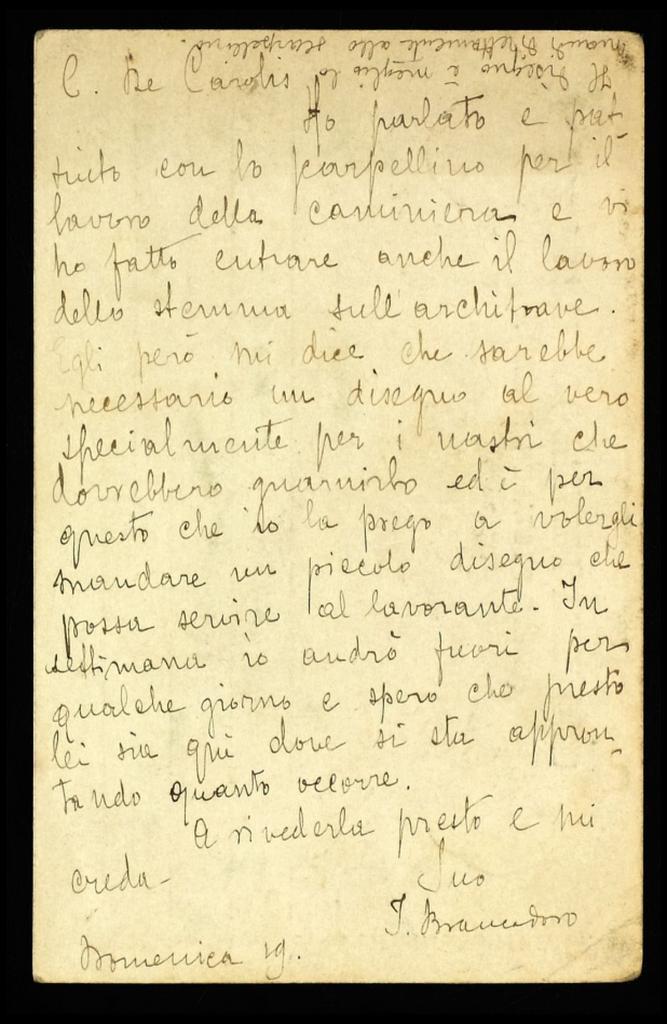 C. De Carolis
Ho parlato e pat-
tuito con lo scarpellino per il
lavoro della caminiera e vi
ho fatto entrare anche il lavoro
dello stemma sull'architrave.
Egli però mi dice che sarebbe
necessario un disegno al vero
specialmente per i nastri che
dovrebbero guarnirlo ed è per
questo che io la prego a volergli
mandare un piccolo disegno che
possa servire al lavorante. In
settimana io andrò fuori per
qualche giorno e spero che presto
lei sia qui dove si sta appron-
tando quanto occorre.
A rivederla presto e mi
creda-
Suo
I. Brancadoro
Domenica 19.
Il disegno è meglio lo
mandi direttamente allo scarpellino.